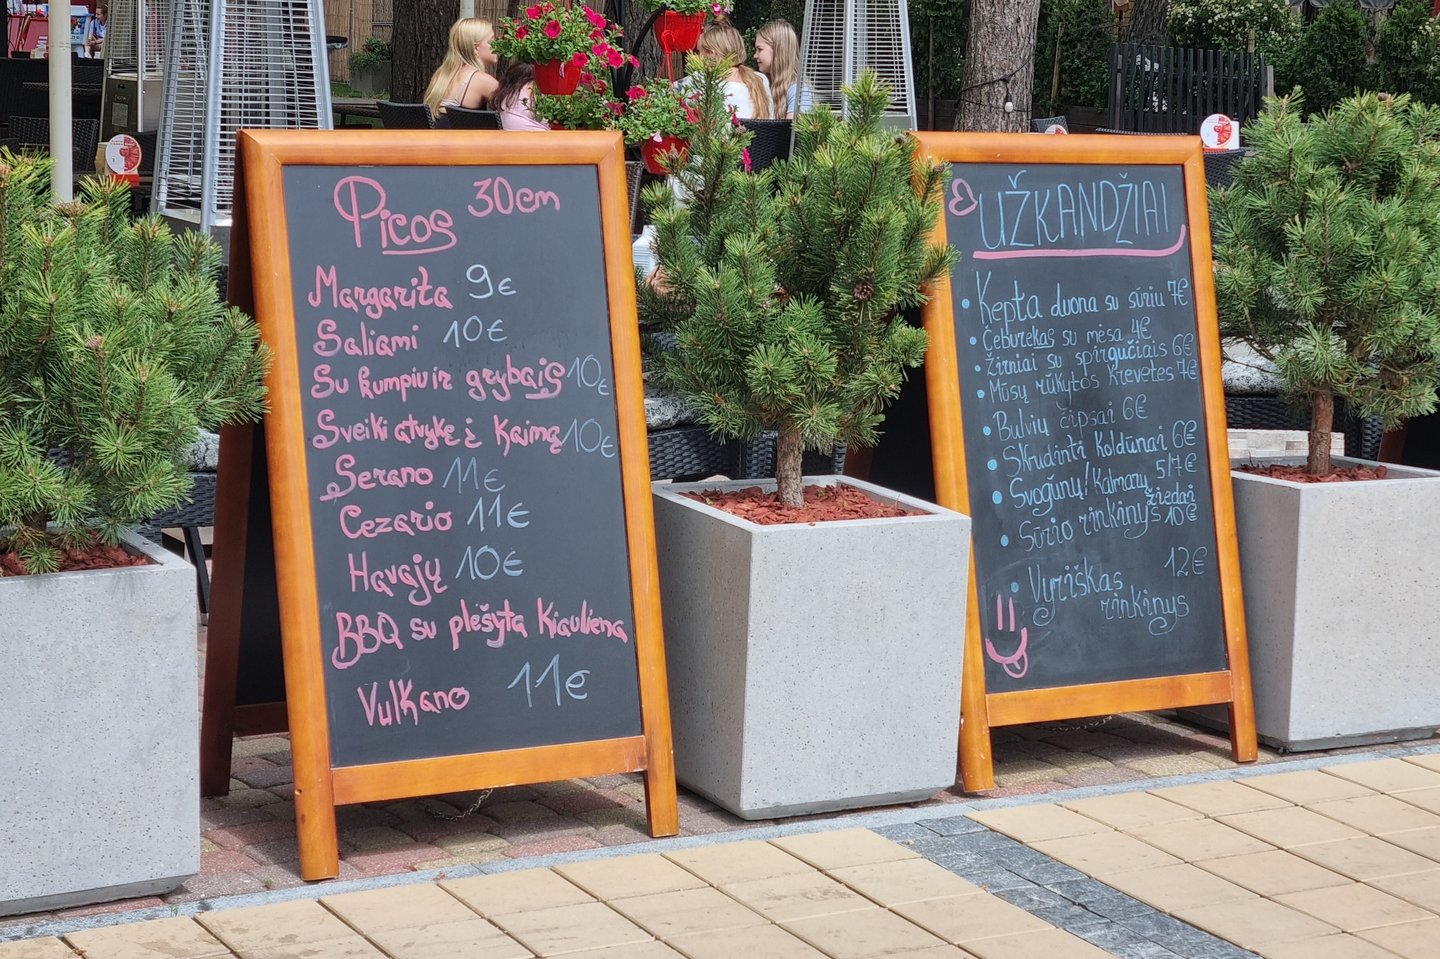 Picos 30cm
Margarita 9€
Saliami 10€
Su kumpiu ir grybais 10€
Sveiki atvykę į Kaimą 10€
Serano 11€
Cezario 11€
Havajų 10€
BBQ su plėšyta Kiauliena
Vulkano 11€
UŽKANDŽIAI
Kepta duona su sūriu 7€
Čeburekas su mėsa 4€
Žirniai su spirgučiais 6€
Mūsų rūkytos krevetės 7€
Bulvių čipsai 6€
Skrudinti Koldūnai 6€
Svogūnų/Kalmarų 5/7€
žiedai
Sūrio rinkinys 10€
Vyriškas 12€
rinkinys